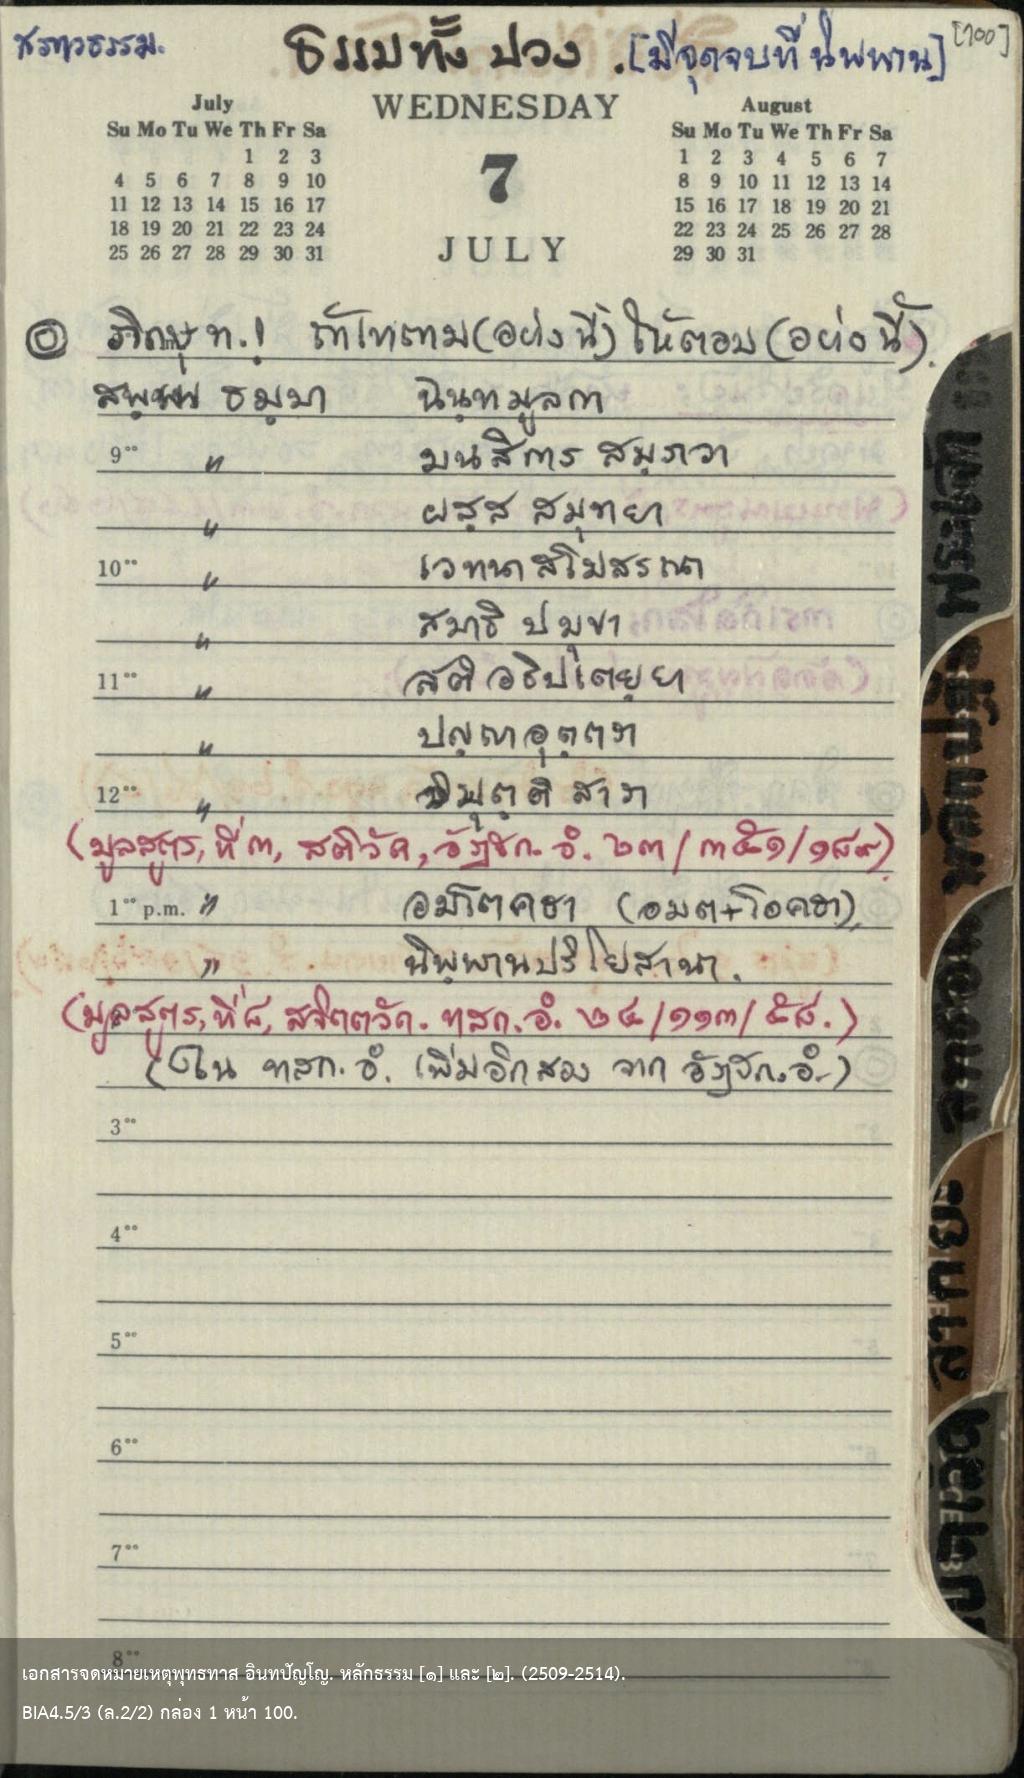 ธรรมทั้งปวง. [มีจุดจบที่นิพพาน] [100]
July
Su Mo Tu We Th Fr Sa
1 2 3
4 5 6 7 8 9 10
11 12 13 14 15 16 17
18 19 20 21 22 23 24
25 26 27 28 29 30 31
WEDNESDAY
7
JULY
August
Su Mo Tu We Th Fr Sa
1 2 3 4 5 6 7
8 9 10 11 12 13 14
15 16 17 18 19 20 21
22 23 24 25 26 27 28
29 30 31
ภิกษุ ท.! ถ้าเขาถาม(อย่างนี้) ให้ตอบ(อย่างนี้).
สพฺเพ ธมฺมา ฉนฺทมูลกา
9°° " มนสิการ สมฺภวา
" ผสฺส สมุทยา
10°° " เวทนา สโมสรณา
" สมาธิ ปมุขา
11°° " สติ อธิปเตยฺยา
" ปญฺญาอุตฺตรา
12°° " วิมุตฺติ สารา
(มูลสูตร, ที่ ๓, สติวัค, อัฏฐก. อํ. ๒๓/๓๕๑/๑๘๙)
1°° p.m. " อมโตคธา (อมต+โอคธา)
" นิพฺพานปริโยสานา.
(มูลสูตร, ที่ ๘, สจิตตวัค. ทสก. อํ. ๒๔/๑๑๓/๕๘.)
(ใน ทสก. อํ. เพิ่มอีกสอง จาก อัฏฐก. อํ.)
3°°
4°°
5°°
6°°
7°°
8°°
เอกสารจดหมายเหตุพุทธทาส อินทปัญโญ. หลักธรรม [๑] และ [๒]. (2509-2514).
BIA4.5/3 (ล.2/2) กล่อง 1 หน้า 100.